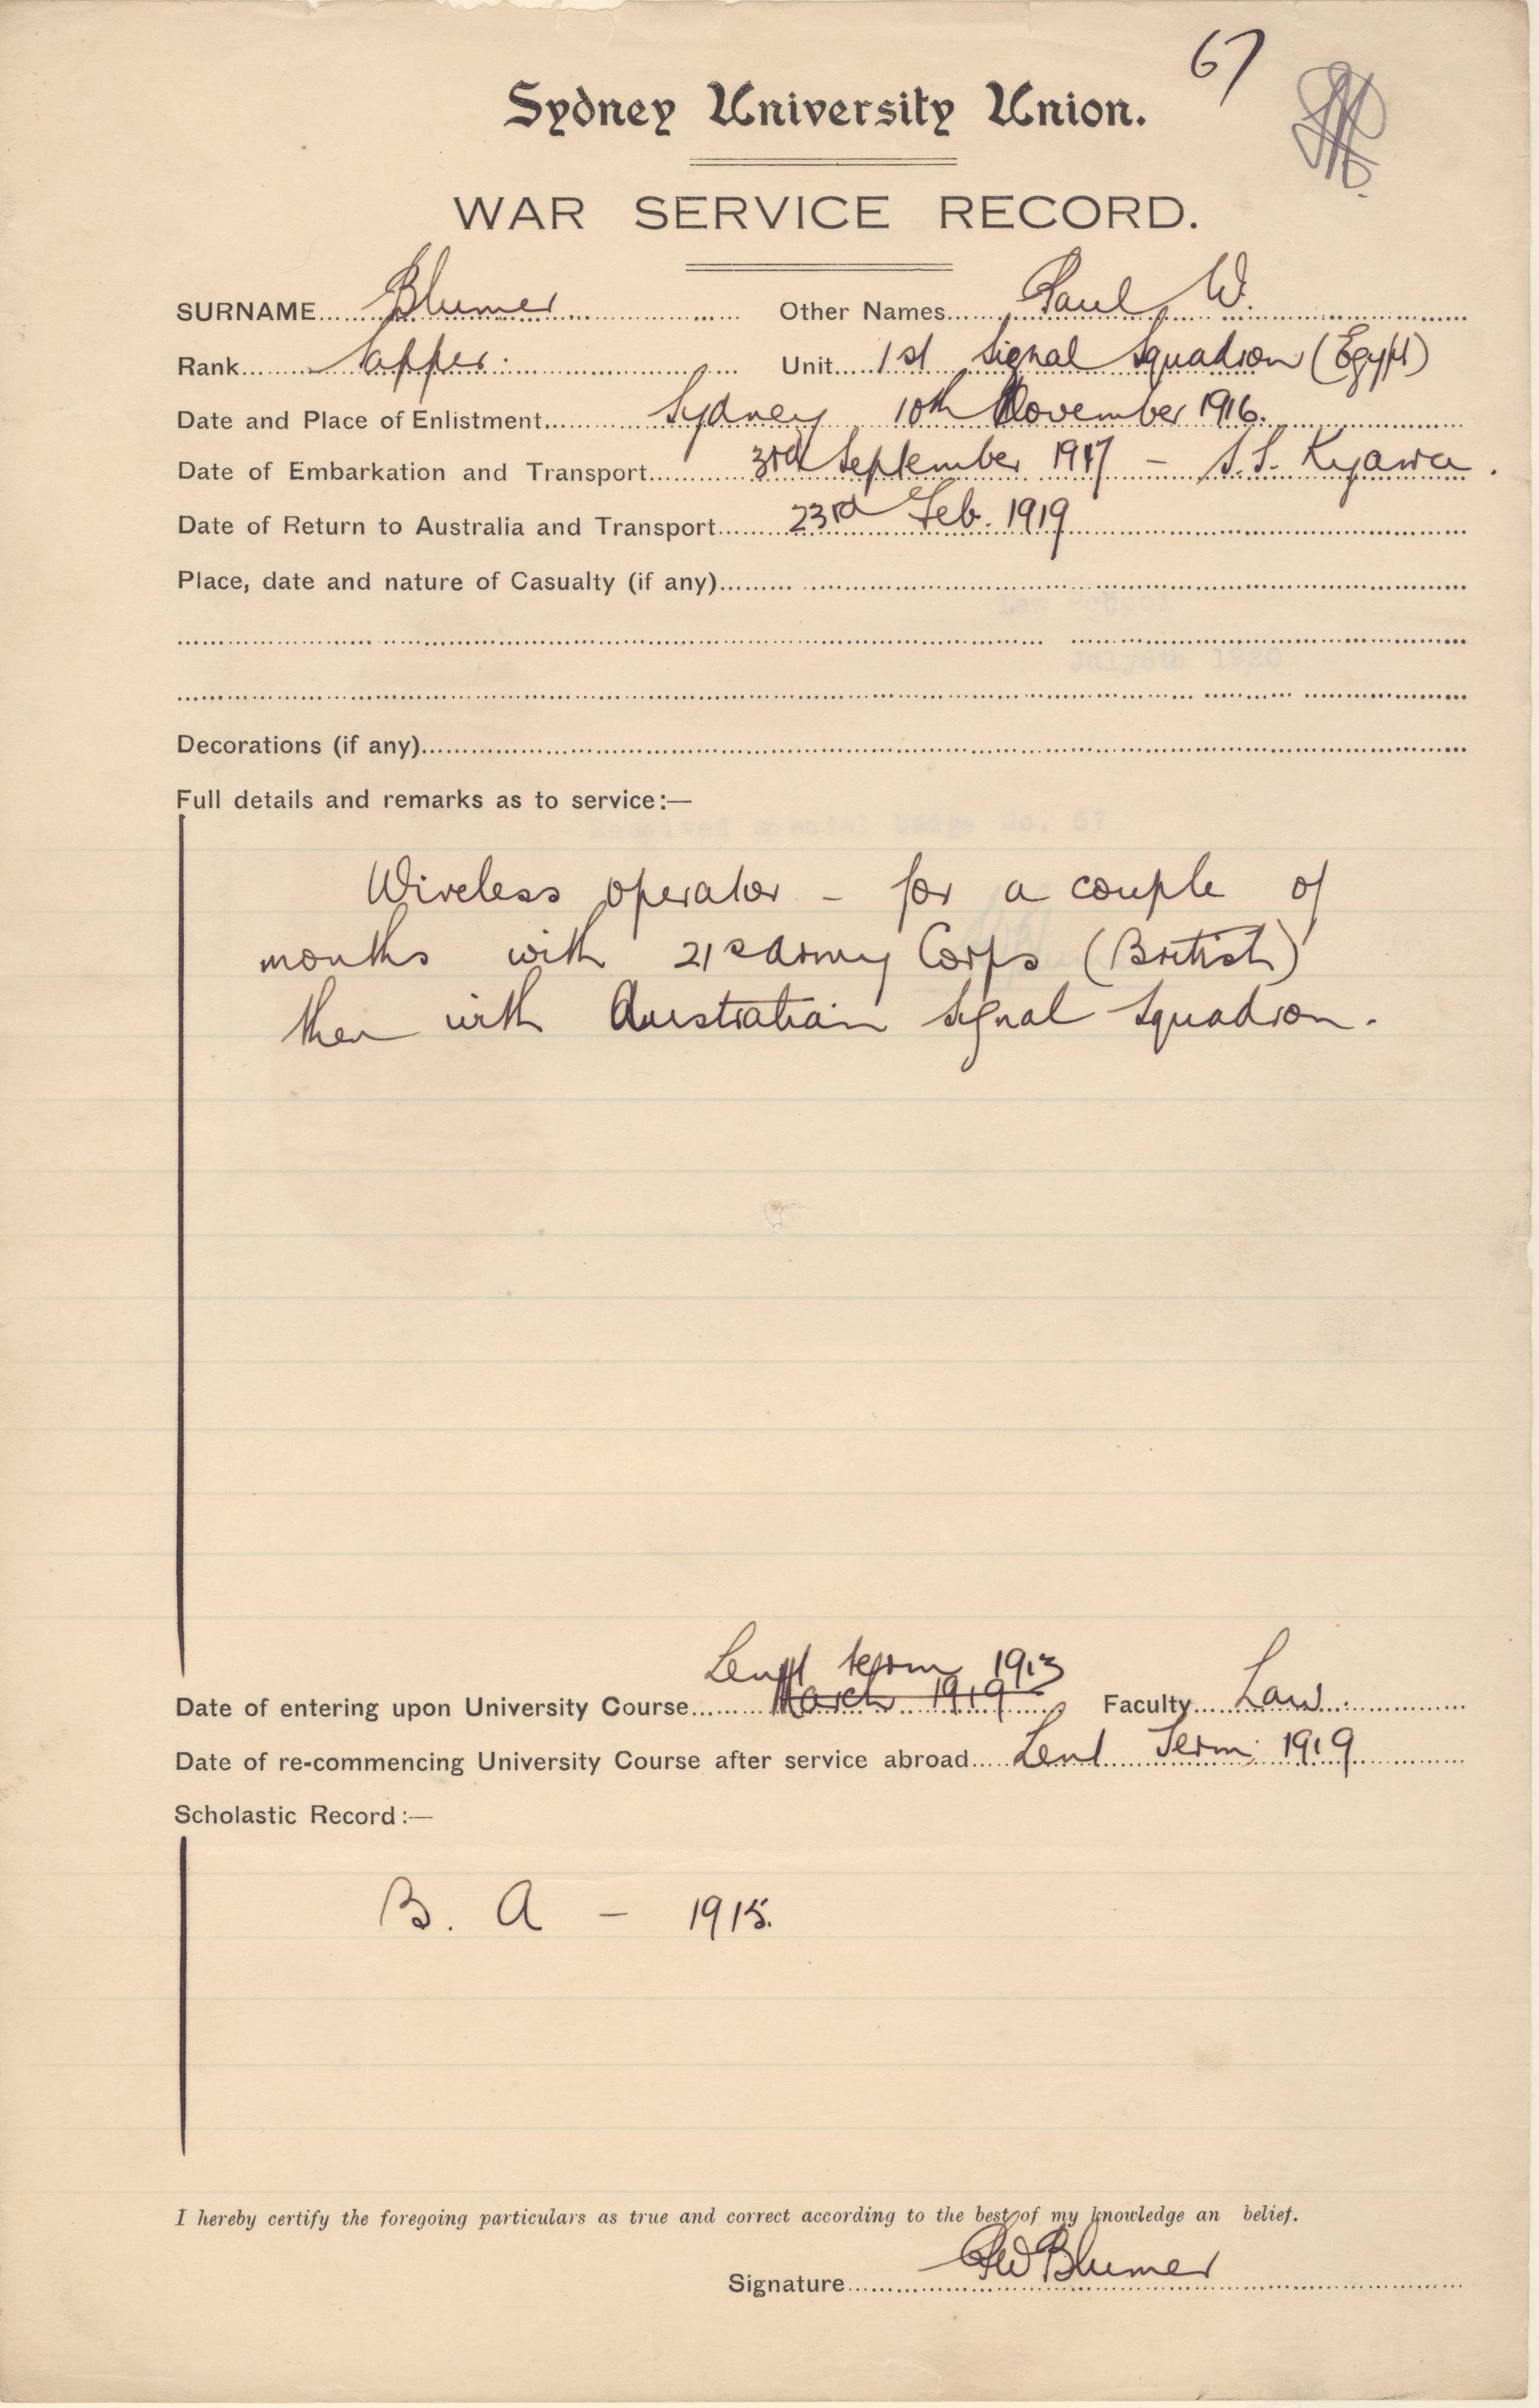 67
Sydney University Union.
WAR SERVICE RECORD.
SURNAME Blumer Other Names Paul W.
Rank Sapper. Unit 1st Signal Squadron (Egypt)
Date and Place of Enlistment Sydney 10th November 1916.
Date of Embarkation and Transport 3rd September 1917 - S.S. Kyarra.
Date of Return to Australia and Transport 23rd Feb. 1919
Place, date and nature of Casualty (if any)
Decorations (if any)
Full details and remarks as to service:—
Wireless operator - for a couple of
months with 21st Army Corps (British)
then with Australian Signal Squadron.
Lent term 1913
Date of entering upon University Course March 1919 Faculty Law.
Date of re-commencing University Course after service abroad Lent Term 1919
Scholastic Record:—
B. A - 1915.
I hereby certify the foregoing particulars as true and correct according to the best of my knowledge an belief.
Signature PW Blumer